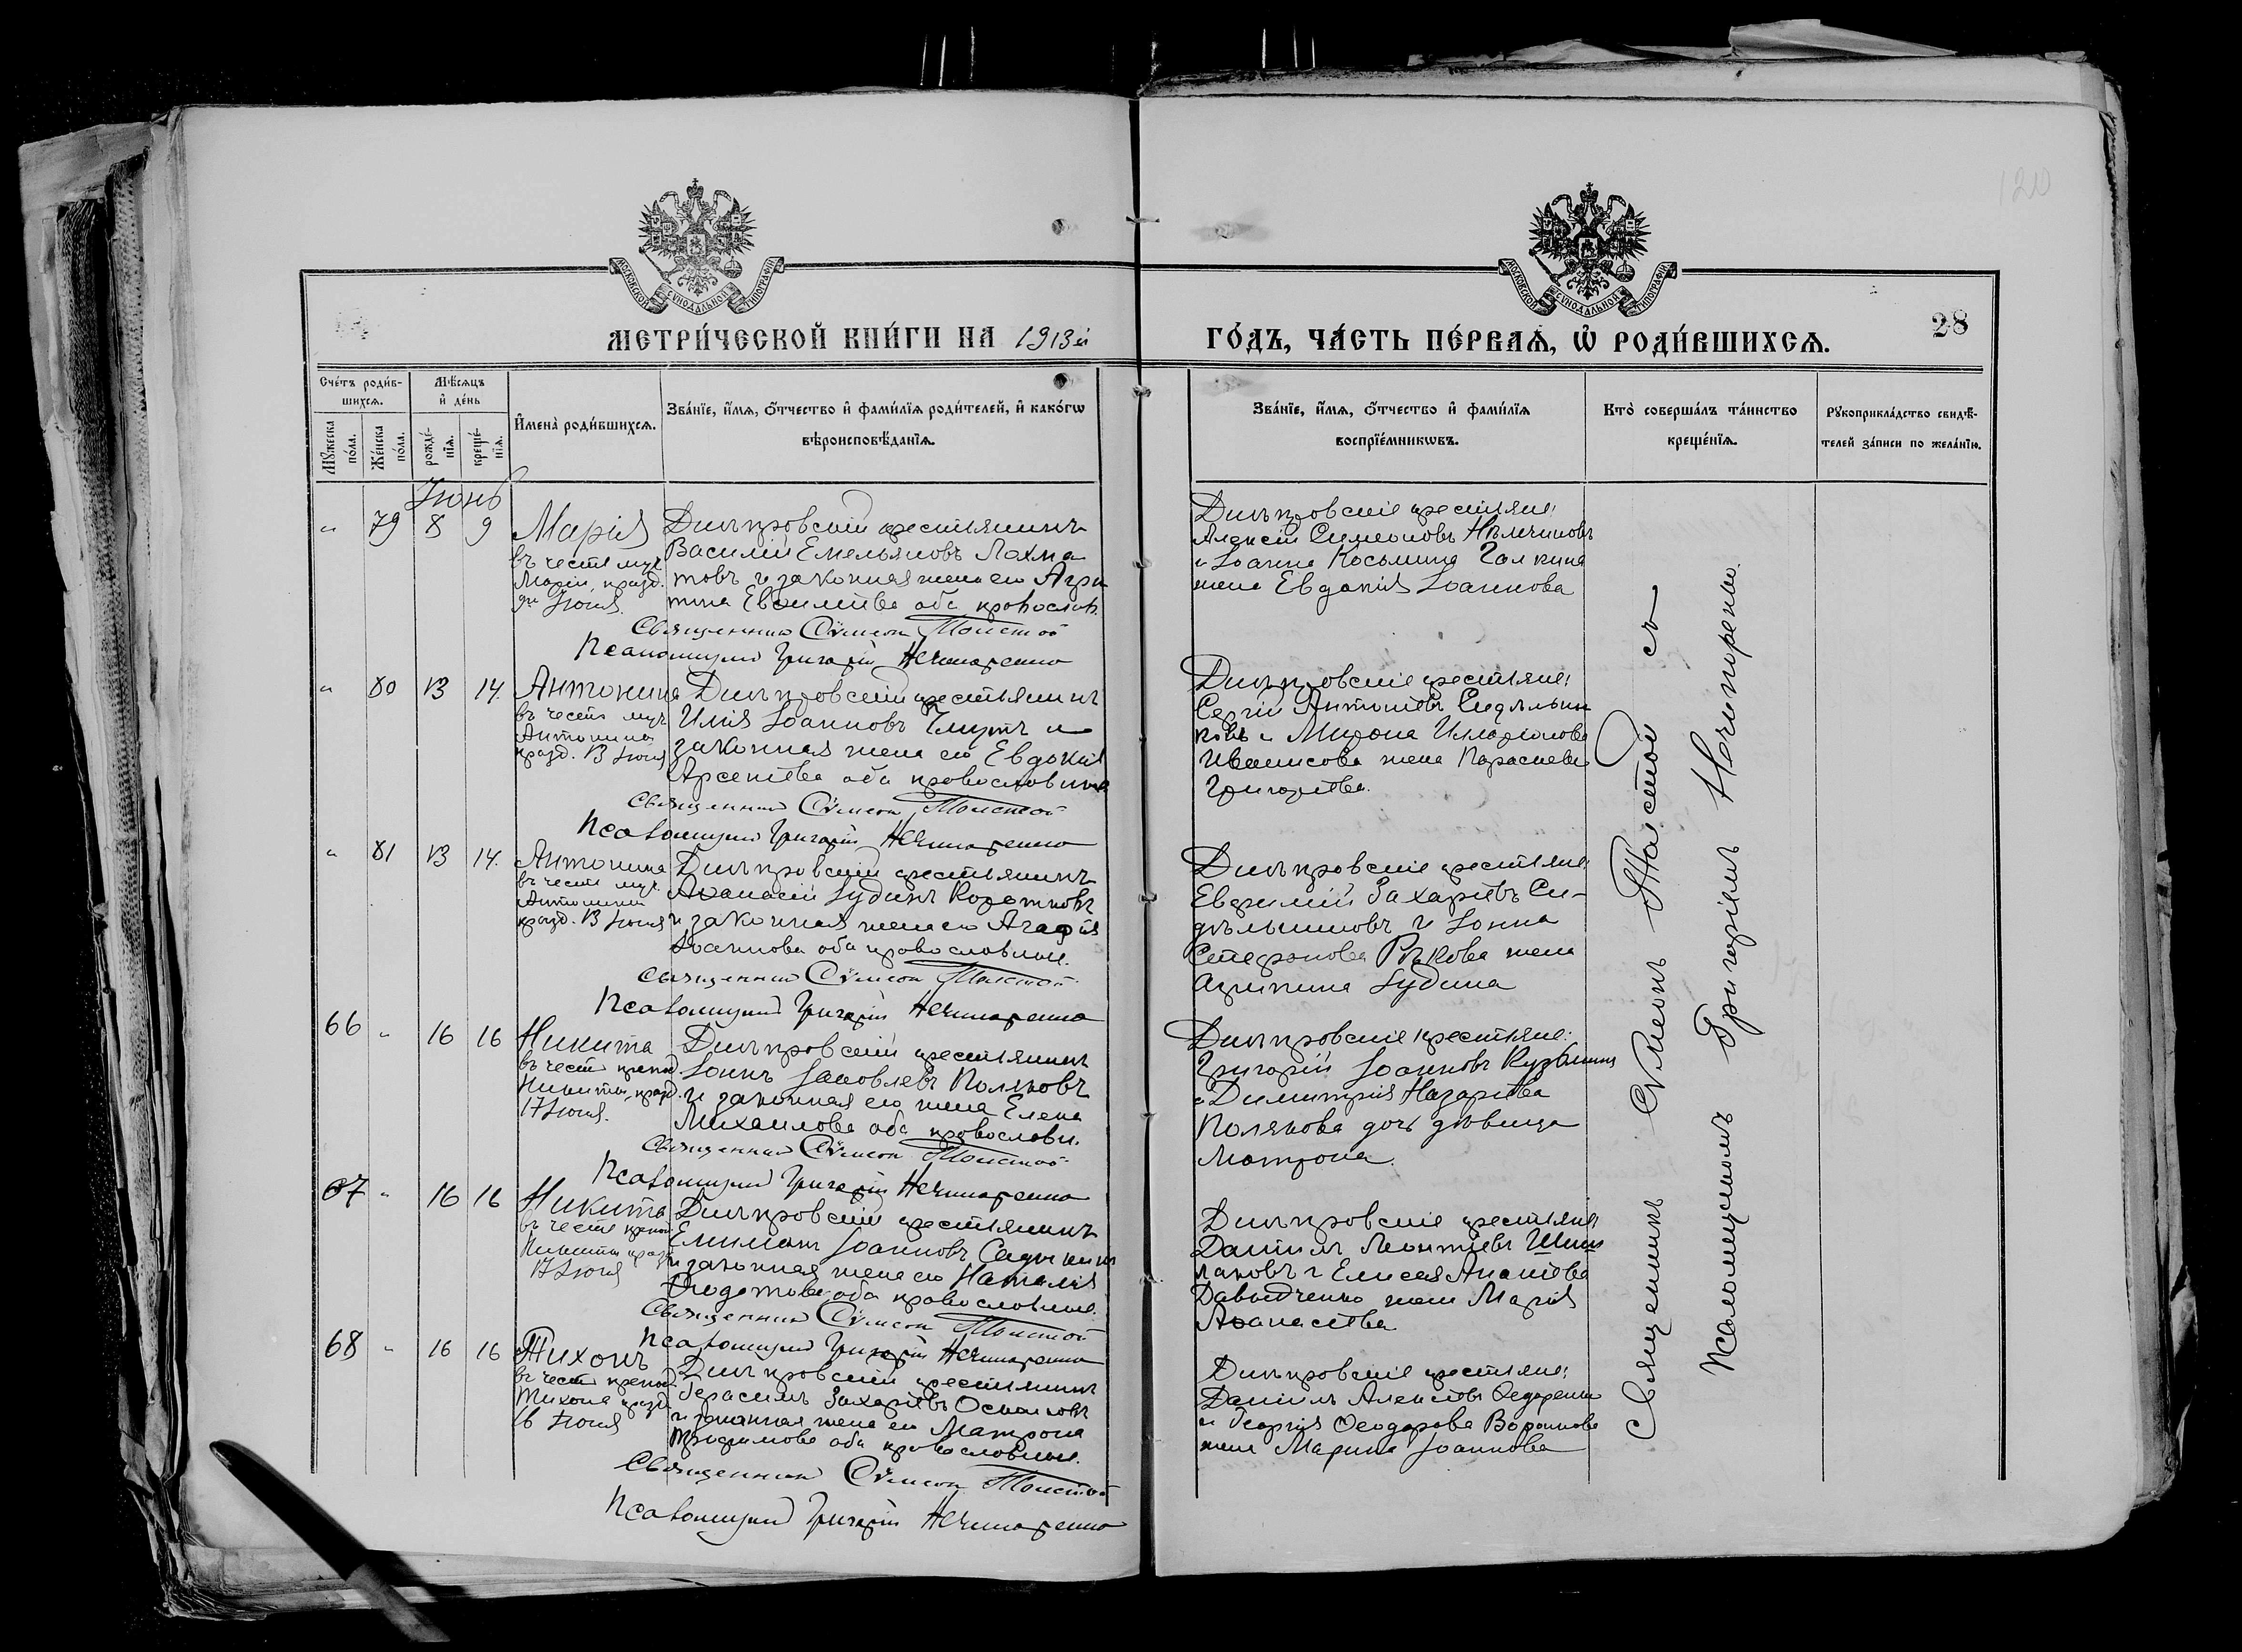 120
МОСКОВСКОЙ СУНОДАЛЬНОЙ ТИПОГРАФІИ
МОСКОВСКОЙ СУНОДАЛЬНОЙ ТИПОГРАФІИ
МЕТРИ́ЧЕСКОЙ КНИ́ГИ НА 1913й
ГО́ДЪ, ЧА́СТЬ ПЕ́РВАѦ, Ѡ҆ РОДИ́ВШИХСѦ.
28
Сче́тъ роди́в-
шихсѧ.
Мѣ́сѧцъ
и҆ де́нь
Мꙋ́жеска
по́ла.
Же́нска
по́ла.
рожде́-
нїѧ.
креще́-
нїѧ.
И҆мена̀ роди́вшихсѧ.
Зва́нїе, и҆́мѧ, ѻ҆́тчество и҆ фами́лїѧ роди́телей, и҆ како́гѡ
вѣроисповѣ́данїѧ.
Зва́нїе, и҆́мѧ, ѻ҆́тчество и҆ фами́лїѧ
воспрїе́мникѡвъ.
Кто̀ соверша́лъ та́инство
креще́нїѧ.
Рꙋкоприкла́дство свидѣ́-
телей за́писи по жела́нїю.
Іюнь
" 79 8 9 Марія
въ честь муч.
Маріи, празд.
9го Іюня.
Днѣпровскій крестьянинъ
Василій Емельяновъ Лахма
товъ и законная жена его Агри
пина Евфиміева оба православ.
Священникъ Сѵмеонъ Толстой
Псаломщикъ Григорій Нечипоренко
Днѣпровскіе крестьяне:
Алексій Симеоновъ Нѣмчиновъ
и Іоанна Косьмина Галкина
жена Евдокія Іоаннова
" 80 13 14. Антонина
въ честь муч.
Антонины
празд. 13 Іюня
Днѣпровскій крестьянинъ
Илія Іоанновъ Чмутъ и
законная жена его Евдокія
Арсеніева оба православные
Священникъ Сѵмеонъ Толстой
Псаломщикъ Григорій Нечипоренко
Днѣпровскіе крестьяне:
Сергій Антоніевъ Сидѣльни
ковъ и Мирона Илларіонова
жена Параскева
Григоріева.
" 81 13 14. Антонина
въ честь муч.
Антонины
празд. 13 Іюня
Днѣпровскій крестьянинъ
Аѳанасій Іудинъ Коротковъ
и законная жена его Агафія
Іоаннова оба православные.
Священникъ Сѵмеонъ Толстой
Псаломщикъ Григорій Нечипоренко
Днѣпровскіе крестьяне:
Евфимій Захаріевъ Си-
дѣльниковъ и Іоанна
Стефанова Рѣкова жена
Агрипина Іудина
66 " 16 16 Никита
въ честь препод.
Никиты, празд.
17 Іюня.
Днѣпровскій крестьянинъ
Іоаннъ Іаковлевъ Поляковъ
и законная его жена Елена
Михаилова оба православн.
Священникъ Сѵмеонъ Толстой
Псаломщикъ Григорій Нечипоренко
Днѣпровскіе крестьяне:
Григорій Іоанновъ Кузьминъ
и Димитрія Назаріева
Полякова дочь дѣвица
Матрона.
67 " 16 16 Никита
въ честь препод.
Никиты празд.
17 Іюня
Днѣпровскій крестьянинъ
Іоанновъ
и законная жена его Наталія
Ѳеодотова оба православные.
Священникъ Сѵмеонъ Толстой
Псаломщикъ Григорій Нечипоренко
Днѣпровскіе крестьяне:
Даніилъ Леонтіевъ
и Елисея Ананіева
Давыдченко жена Марія
Аѳанасіева
68 " 16 16 Тихонъ
въ честь препод.
Тихона празд.
16 Іюня
Днѣпровскій крестьянинъ
Герасимъ Захаріевъ
и законная жена его Матрона
Трофимова оба православные.
Священникъ Сѵмеонъ Толстой
Псаломщикъ Григорій Нечипоренко
Днѣпровскіе крестьяне:
Даніилъ Алексіевъ Ѳедоренко
и Георгія Ѳеодорова Воронкова
жена Марина Іоаннова
Священникъ Сѵмеонъ Толстой съ
Псаломщикомъ Григоріемъ Нечипоренко.